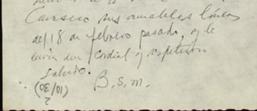 sus amables líneas
del 18 de febrero pasado, y le
envía un cordial y respetuoso
saludo.
B. S. M.
(10/30)
?